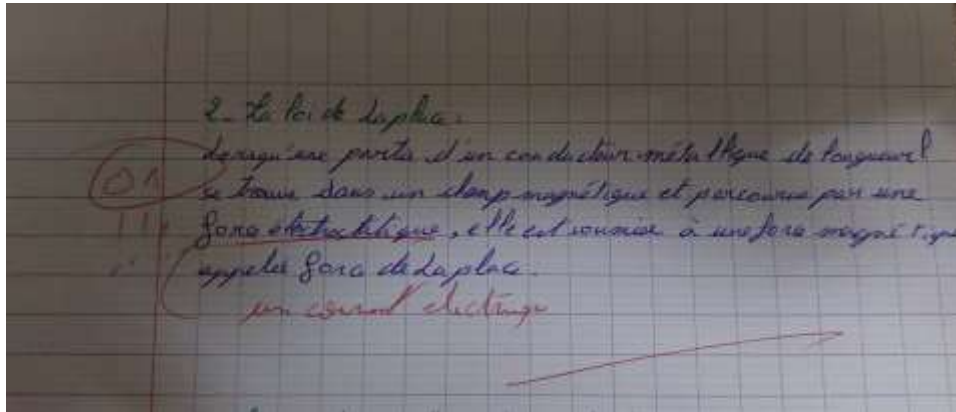 2- La loi de Laplace.
Lorsqu'une partie d'un conducteur métallique de longueur l
se trouve dans un champ magnétique et parcourue par une
force électrostatique, elle est soumise à une force magnétique
appelée force de Laplace.
un courant électrique